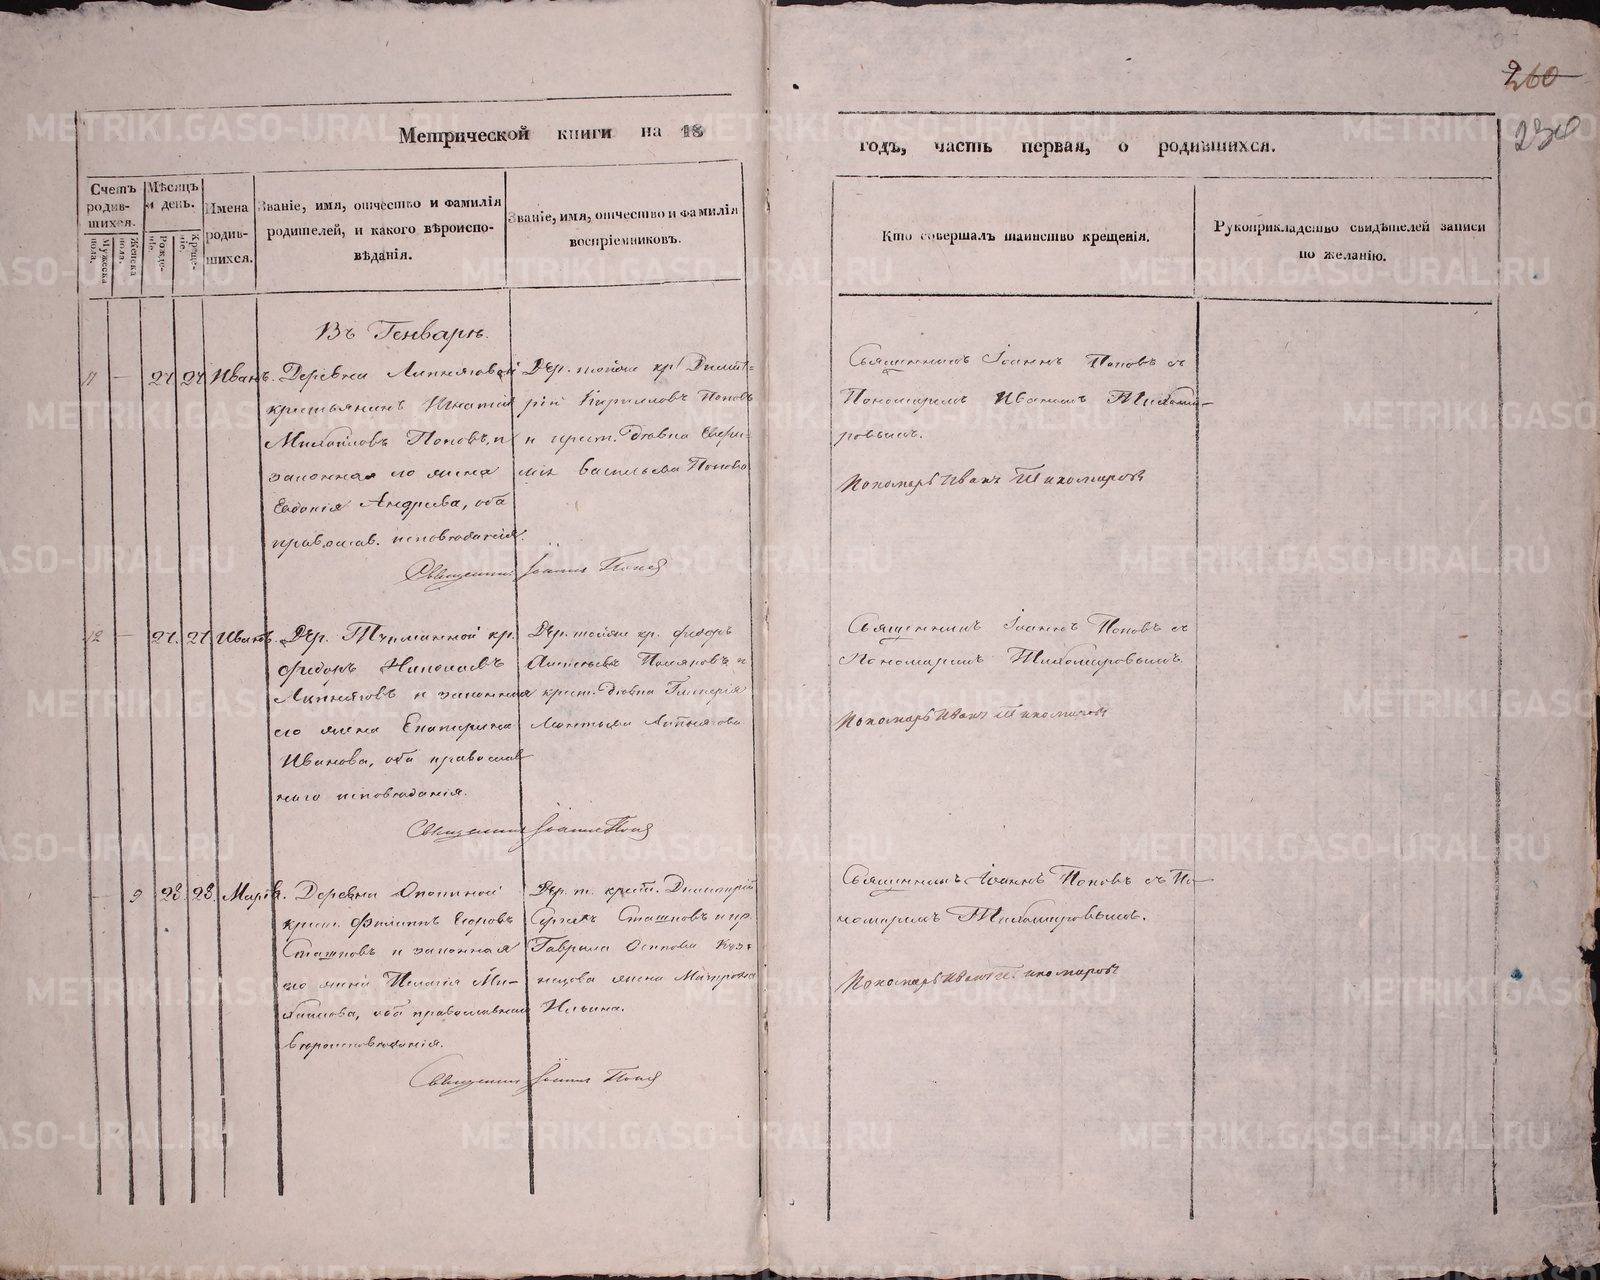 260
230
Метрической книги на 18
годъ, часть первая, о родившихся.
Счетъ родившихся.
Мужеска пола.
Женска пола.
Мѣсяцъ и день.
Рожденіе.
Крещеніе.
Имена родившихся.
Званіе, имя, отчество и фамилія
родителей, и какого вѣроиспо-
вѣданія.
Званіе, имя, отчество и фамилія
воспріемниковъ.
Кто совершалъ таинство крещенія.
Рукоприкладство свидѣтелей записи
по желанію.
Въ Генварѣ.
11 — 24 24 Иванъ.
Деревни Липняговой
крестьянинъ Игнатій
Михайловъ Поповъ, и
законная его жена
Евдокія Андреева, оба
православ. исповѣданія.
Дер. тойже кр. Димит-
рій Кирилловъ Поповъ
и крест. дѣвка Ефи-
мія Васильева Попова
Священникъ Іоаннъ Поповъ съ
Пономаремъ Иваномъ Тихоми-
ровымъ.
Пономарь Иванъ Тихомировъ
Священникъ Іоаннъ Поповъ
12 — 27. 27. Иванъ.
Дер. кр.
Федоръ Николаевъ
Липняговъ и законная
его жена Екатерина
Иванова, оба православ
наго исповѣданія.
Дер. тойже кр. Федоръ
и
крест. дѣвка Гликерія
Леонтьева Липнягова
Священникъ Іоаннъ Поповъ съ
Пономаремъ Тихомировымъ.
Пономарь Иванъ Тихомировъ
Священникъ Іоаннъ Поповъ
— 9 28. 28. Марія.
Деревни
крест. Филиппъ Егоровъ
Сташковъ и законная
его жена Пелагія Ми-
хайлова, оба православнаго
вѣроисповѣданія.
Дер. т. крест. Димитрій
Сергѣевъ Сташковъ и кр.
Гаврила Осипова Куз-
нецова жена Матрона
Ильина.
Священникъ Іоаннъ Поповъ съ По-
номаремъ Тихомировымъ.
Пономарь Иванъ Тихомировъ
Священникъ Іоаннъ Поповъ
METRIKI.GASO-URAL.RU